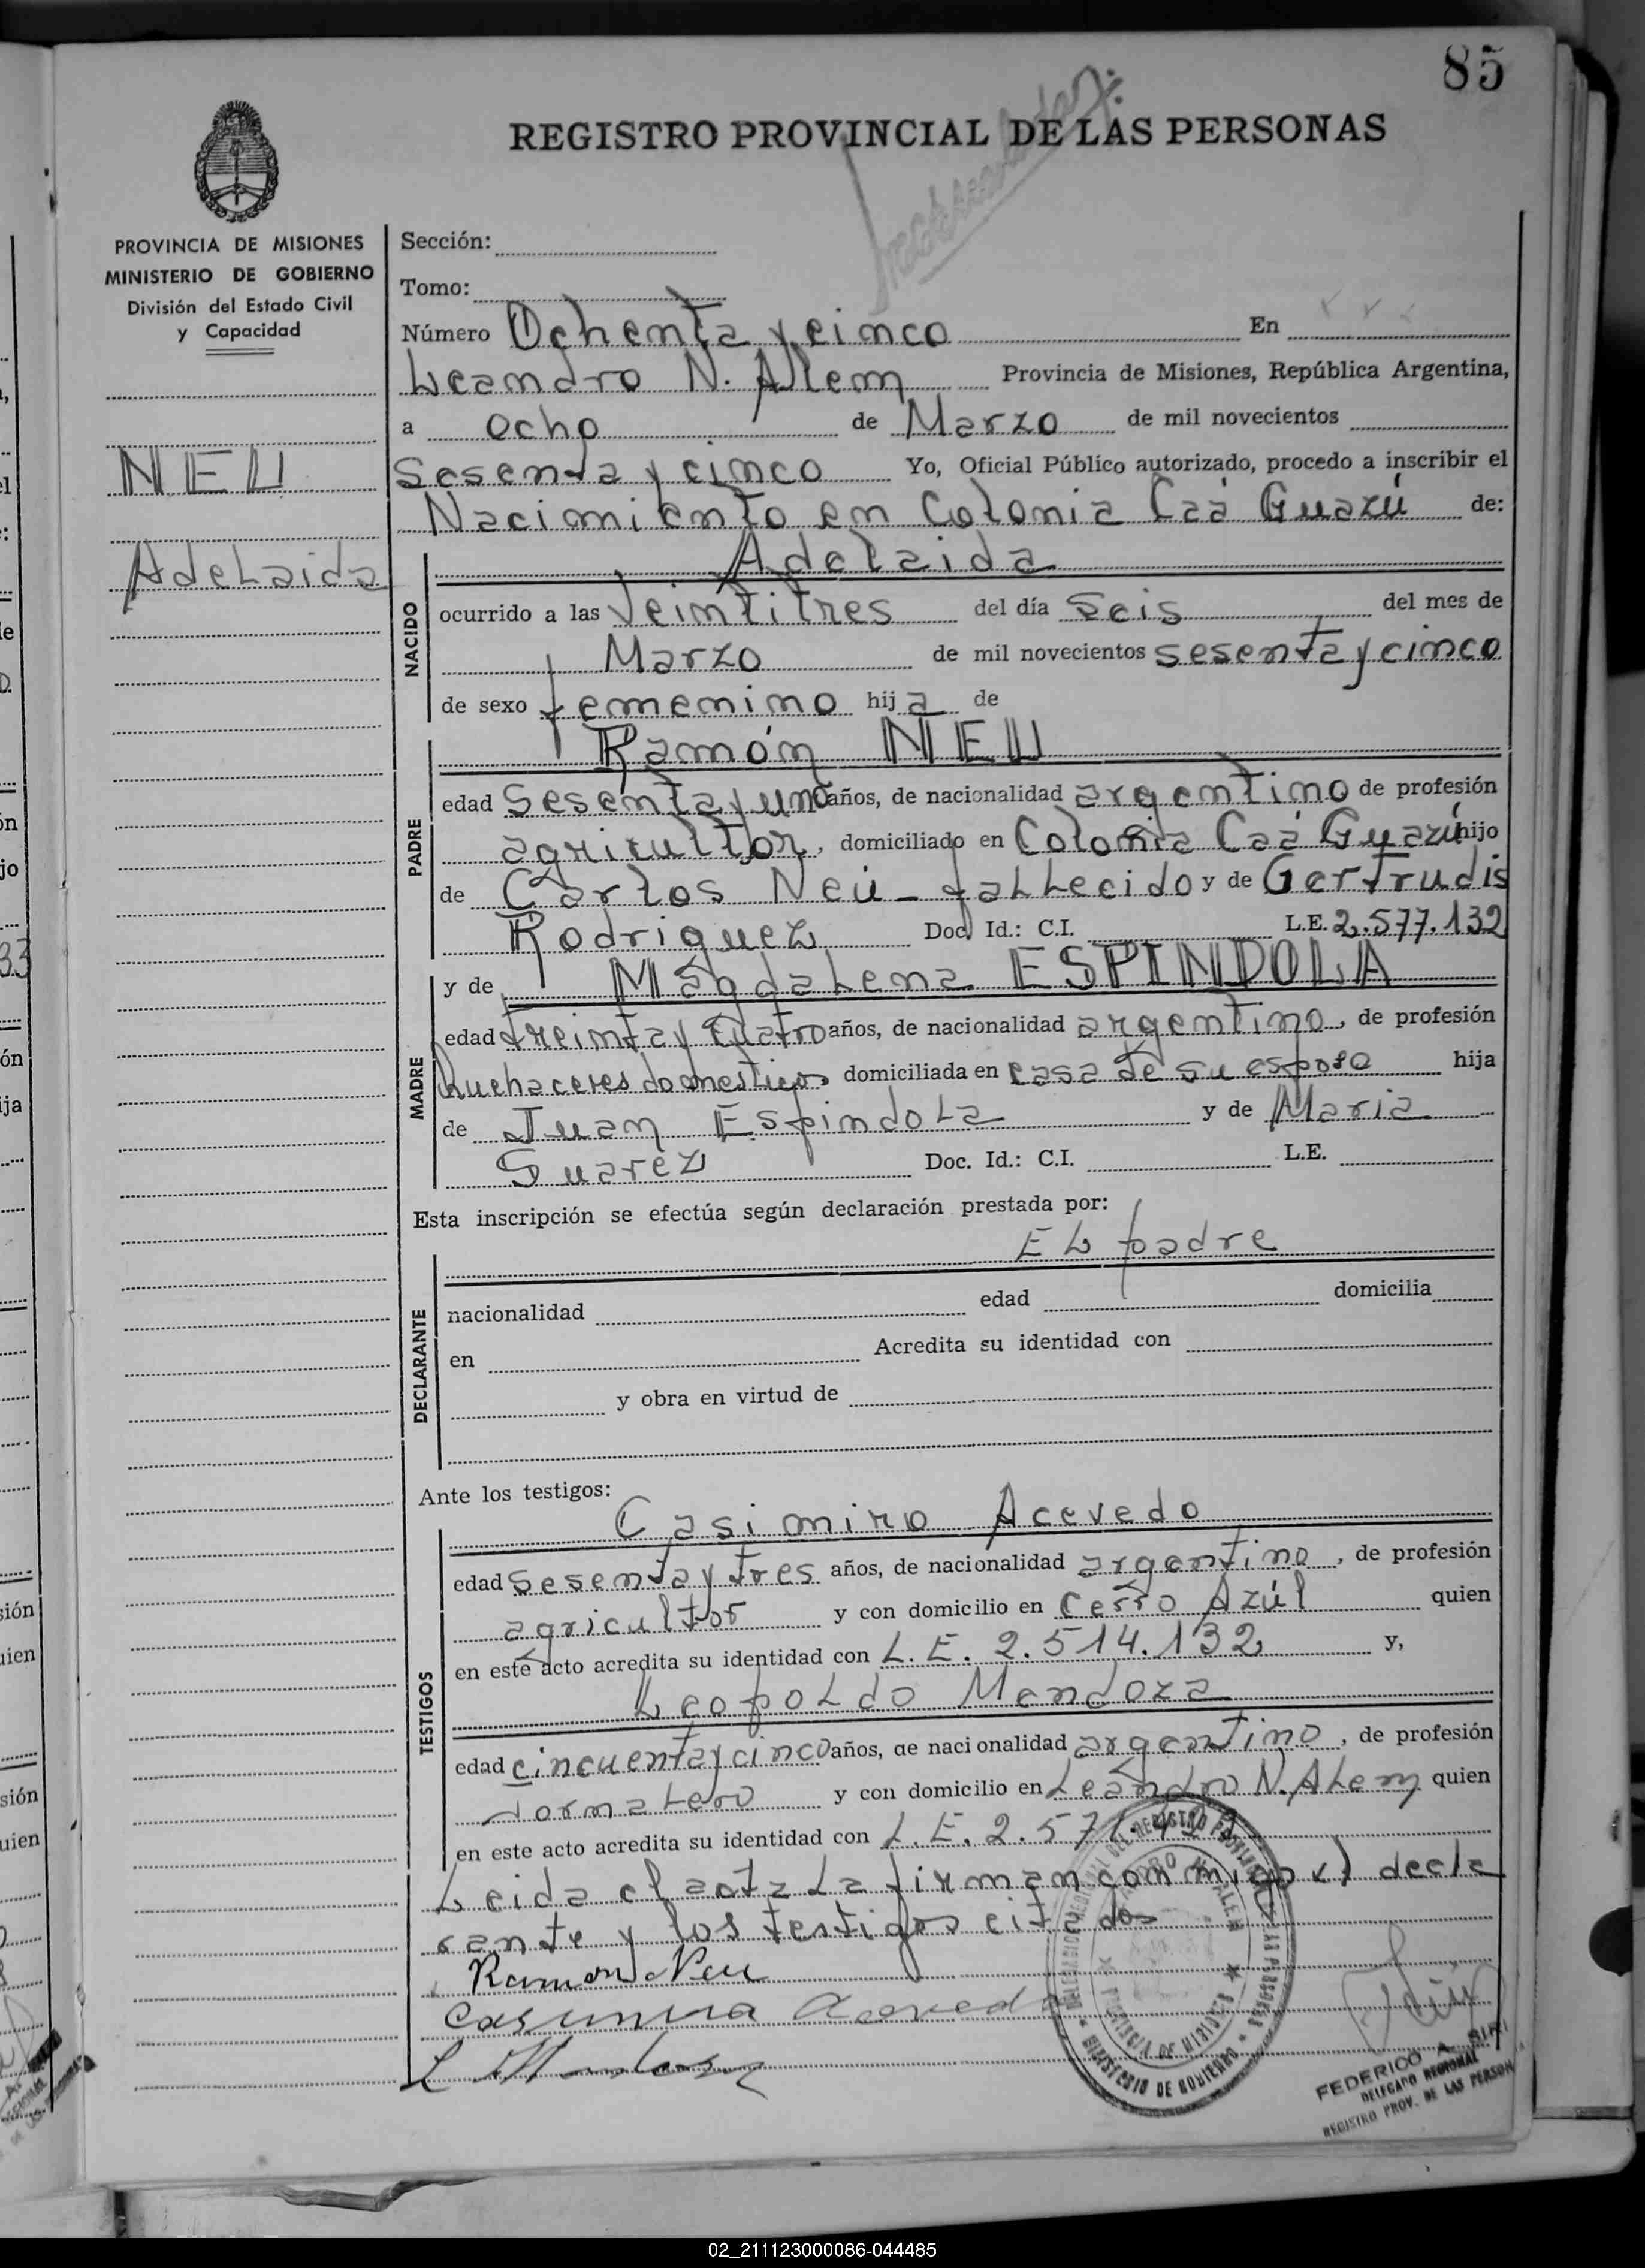 85
REGISTRO PROVINCIAL DE LAS PERSONAS
PROVINCIA DE MISIONES
MINISTERIO DE GOBIERNO
División del Estado Civil
y Capacidad
NEU
Adelaida
Sección:
Tomo:
Número Ochenta y cinco En
Leandro N. Alem Provincia de Misiones, República Argentina,
a ocho de Marzo de mil novecientos
sesenta y cinco Yo, Oficial Público autorizado, procedo a inscribir el
Nacimiento en Colonia Caá Guazú de:
NACIDO
Adelaida
ocurrido a las veintitres del día seis del mes de
Marzo de mil novecientos sesenta y cinco
de sexo femenino hija de
PADRE
Ramón NEU
edad sesenta y uno años, de nacionalidad argentino de profesión
agricultor, domiciliado en Colonia Caá Guazú hijo
de Carlos Neu - fallecido y de Gertrudis
Rodriguez Doc. Id.: C.I. L.E. 2.577.132
MADRE
y de Magdalena ESPINDOLA
edad treinta y cuatro años, de nacionalidad argentino, de profesión
quehaceres domesticos domiciliada en casa de su esposo hija
de Juan Espindola y de Maria
Suarez Doc. Id.: C.I. L.E.
Esta inscripción se efectúa según declaración prestada por:
DECLARANTE
El padre
nacionalidad edad domicilia
en Acredita su identidad con
y obra en virtud de
Ante los testigos:
TESTIGOS
Casimiro Acevedo
edad sesenta y tres años, de nacionalidad argentino, de profesión
agricultor y con domicilio en Cerro Azúl quien
en este acto acredita su identidad con L.E. 2.514.132 y,
Leopoldo Mendoza
edad cincuenta y cinco años, de nacionalidad argentino, de profesión
Jornalero y con domicilio en Leandro N. Alem quien
en este acto acredita su identidad con L.E. 2.57
Leida el acta la firman conmigo el decla
rante y los testigos citados
Ramon Neu
Casimira Acevedo
FEDERICO A.
DELEGADO REGIONAL
REGISTRO PROV. DE LAS PERSON
MINISTERIO DE GOBIERNO
PROVINCIA DE MISIONES
02_211123000086-044485